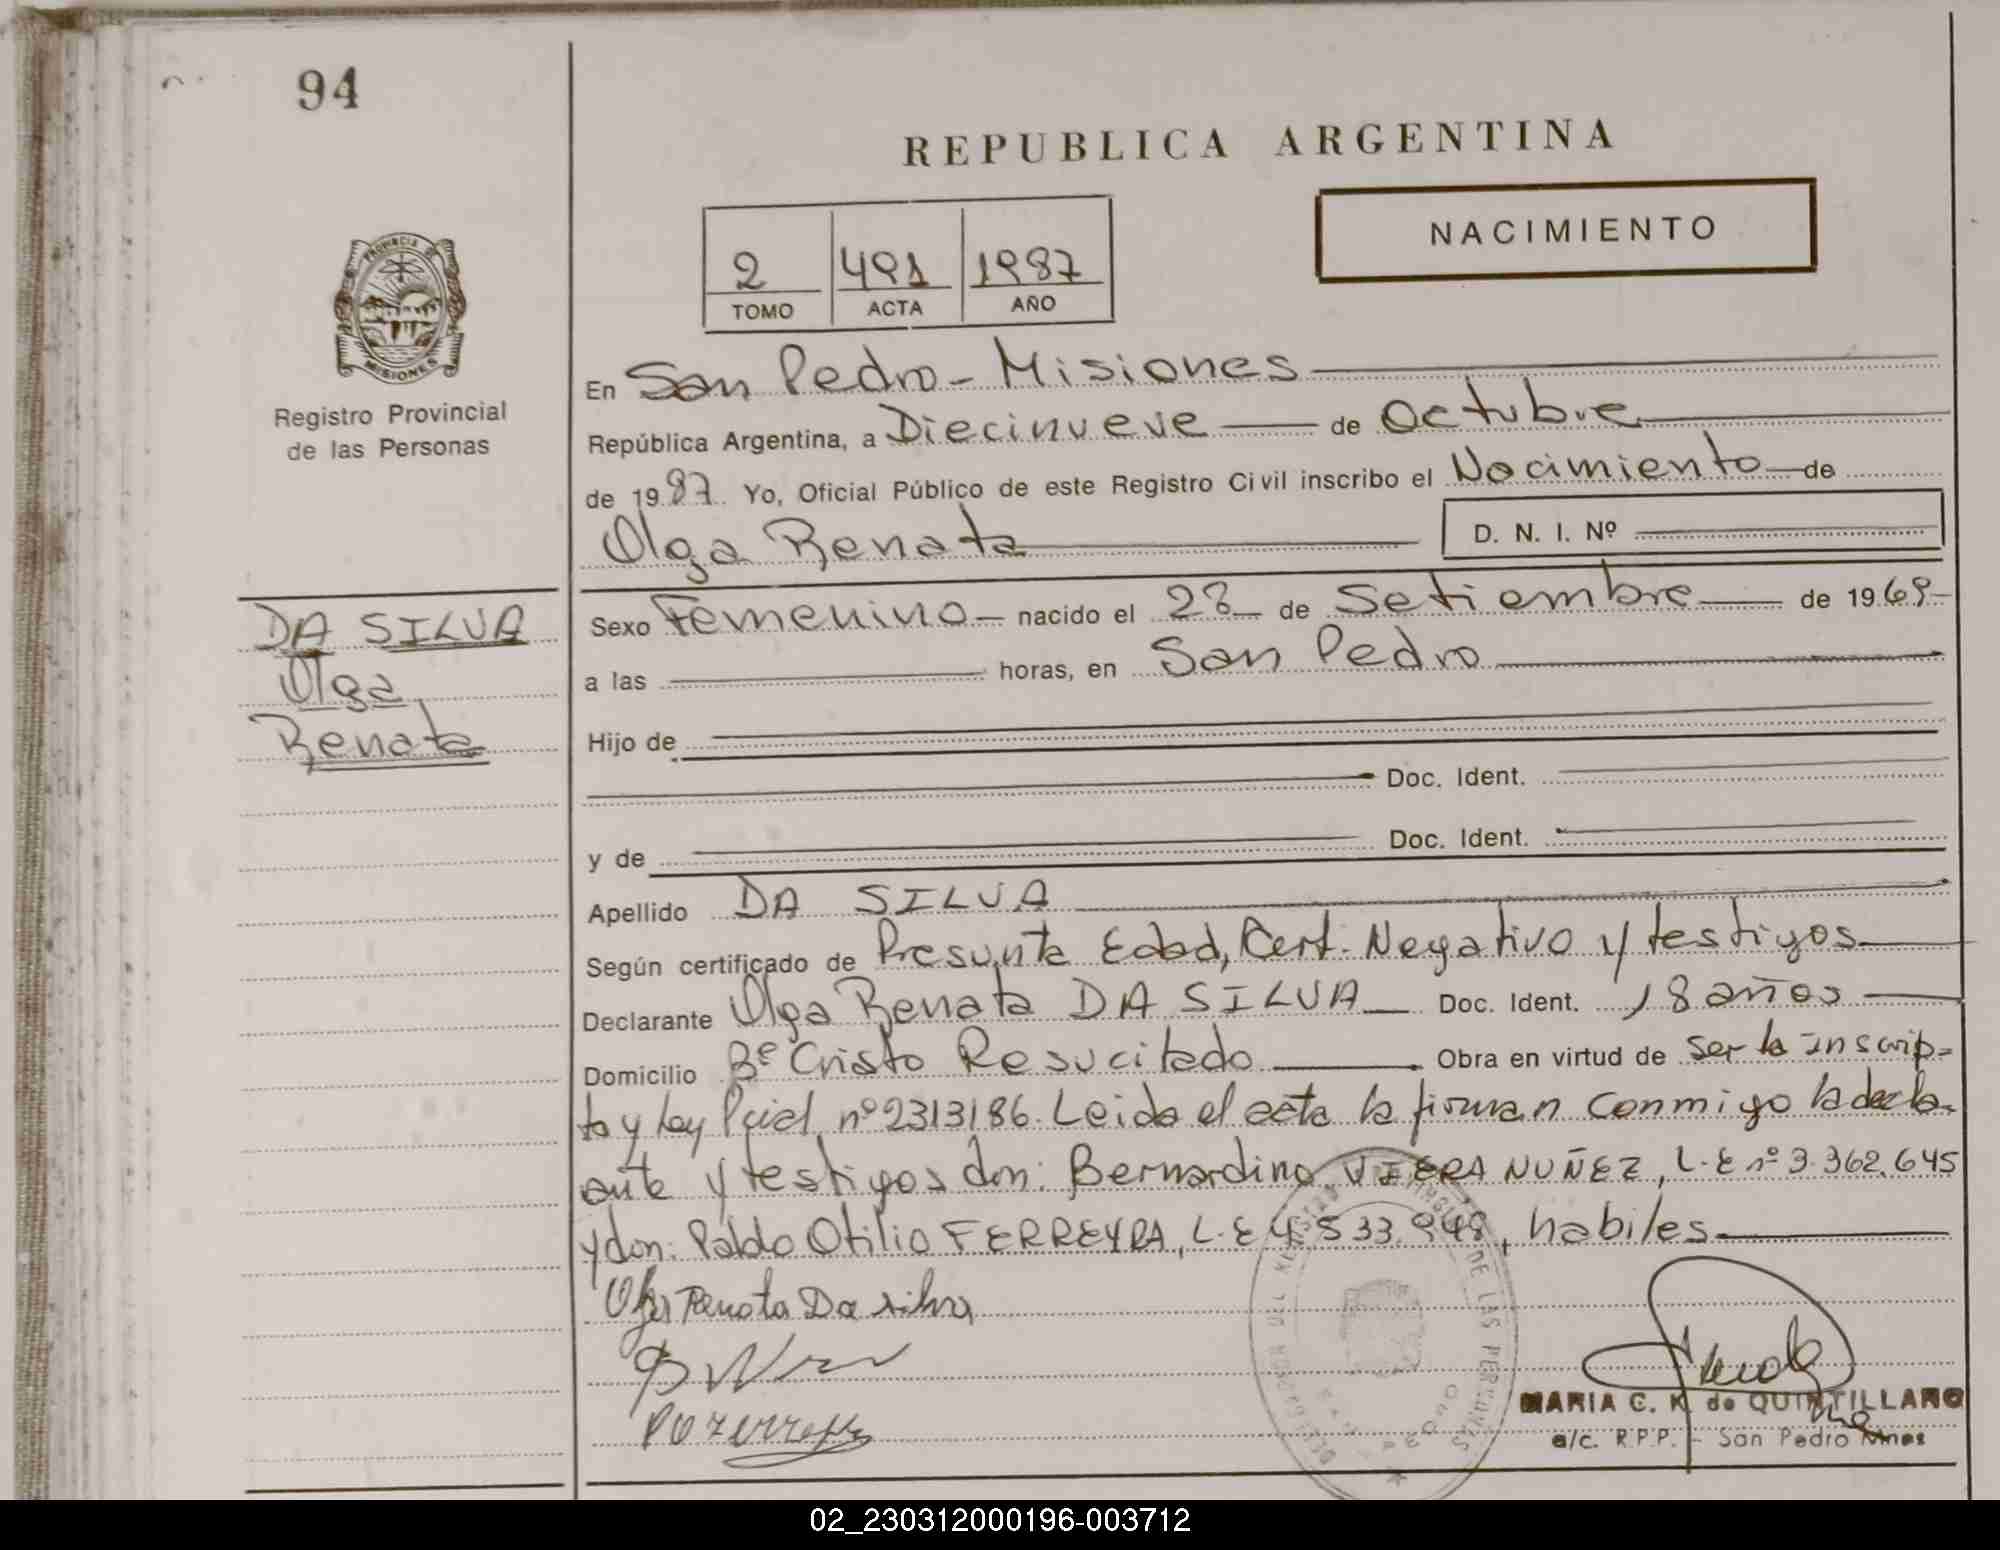 94
REPUBLICA ARGENTINA
NACIMIENTO
2 491 1987
TOMO ACTA AÑO
PROVINCIA
MISIONES
Registro Provincial
de las Personas
En San Pedro - Misiones
República Argentina, a Diecinueve de Octubre
de 1987. Yo, Oficial Público de este Registro Civil inscribo el Nacimiento de
Olga Renata D. N. I. Nº
DA SILVA
Olga
Renata
Sexo Femenino nacido el 28 de Setiembre de 1969
a las horas, en San Pedro
Hijo de
Doc. Ident.
y de Doc. Ident.
Apellido DA SILVA
Según certificado de Presunta Edad, Cert. Negativo y testigos
Declarante Olga Renata DA SILVA Doc. Ident. 18 años
Domicilio Bº Cristo Resucitado Obra en virtud de ser la inscrip=
ta y Ley Pcial nº 2313/86. Leida el acta la firman conmigo la decla-
ante y testigos don: Bernardino VIERA NUÑEZ, L.E nº 3.362.645
y don: Pablo Otilio FERREYRA, L.E 4.533.948, habiles
Olga Renata Da silva
MARIA C. K. de QUINTILLANO
a/c. R.P.P. - San Pedro Mnes
02_230312000196-003712